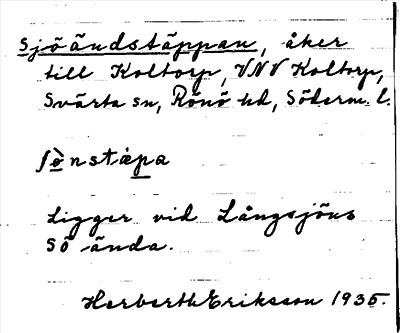 Sjöändstäppan, åker
till Koltorp, VNV Koltorp,
Svärta sn, Rönö hd, Söderm. l.
ʃø̀nstɛpa
Ligger vid Långsjöns
SÖ ända.
Herbert Eriksson 1935.